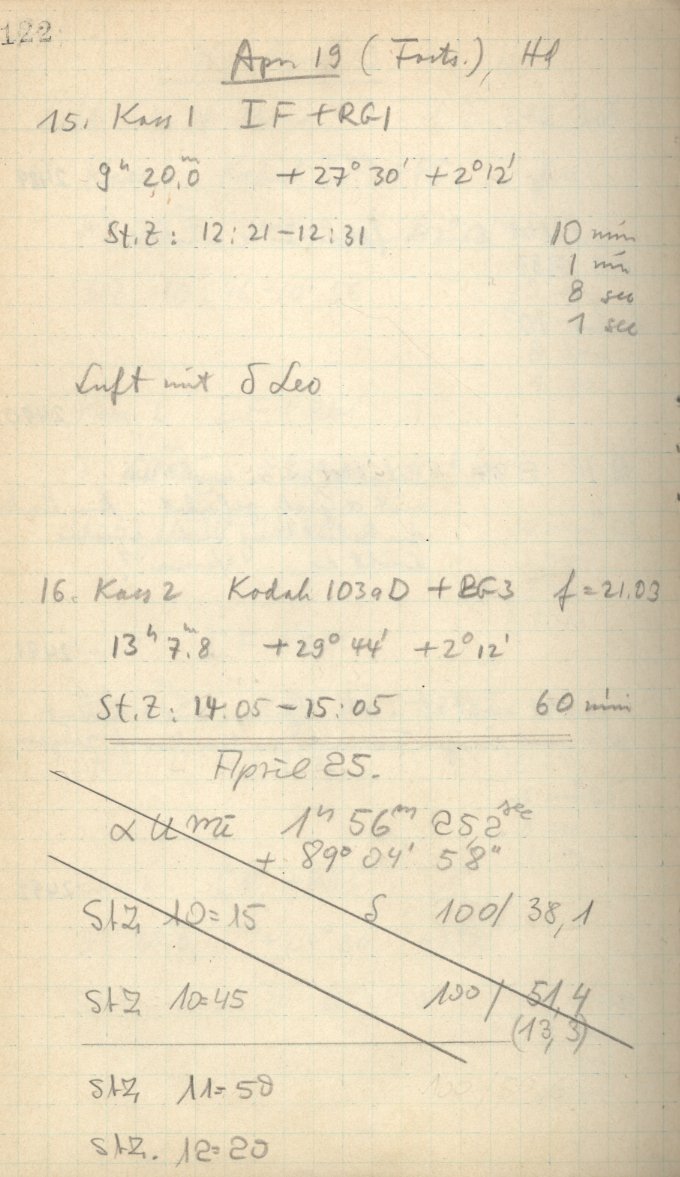 122
Apr 19 (Forts.), Hd
15. Kass 1 IF + RG1
9ʰ 20,ᵐ0 +27° 30' +2° 12'
St.Z: 12:21 - 12:31 10 min
1 min
8 sec
1 sec
Luft mit δ Leo
16. Kass 2 Kodak 103aD + RG3 f = 21.03
13ʰ 7.ᵐ8 +29° 44' +2° 12'
St.Z: 14:05 - 15:05 60 min
April 25.
α U Mi 1ʰ 56ᵐ 25,2 sec
+ 89° 04' 58"
StZ 10=15 δ 100/ 38,1
StZ 10=45 100/ 51,4
(13,3)
StZ 11=50
StZ. 12=20